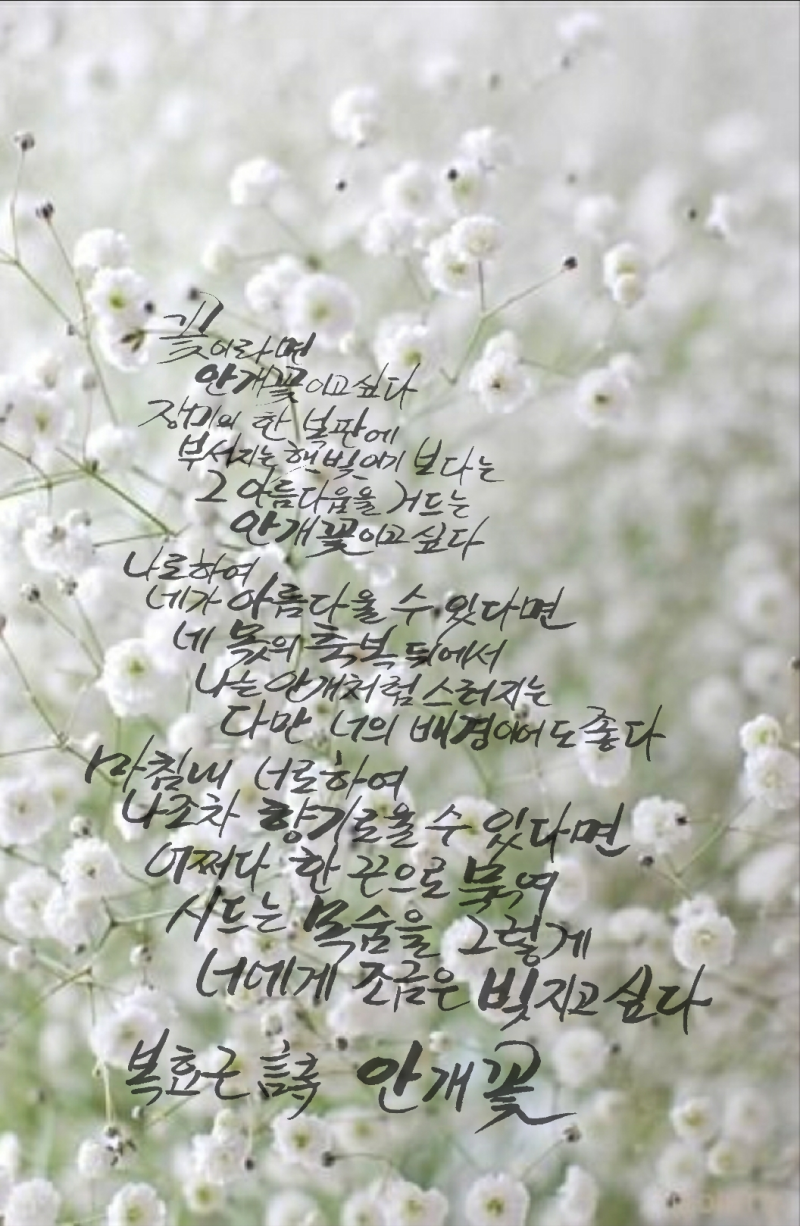 꽃이라면
안개꽃이고싶다
장미의 한 복판에
부서지는 햇빛이기 보다는
그 아름다움을 거드는
안개꽃이고싶다
나로하여
네가 아름다울 수 있다면
네 몫의 축복 뒤에서
나는 안개처럼 스러지는
다만 너의 배경이어도 좋다
마침내 너로하여
나조차 향기로울 수 있다면
어쩌다 한 끈으로 묶여
시드는 목숨을 그렇게
너에게 조금은 빚지고 싶다
복효근 詩 안개꽃